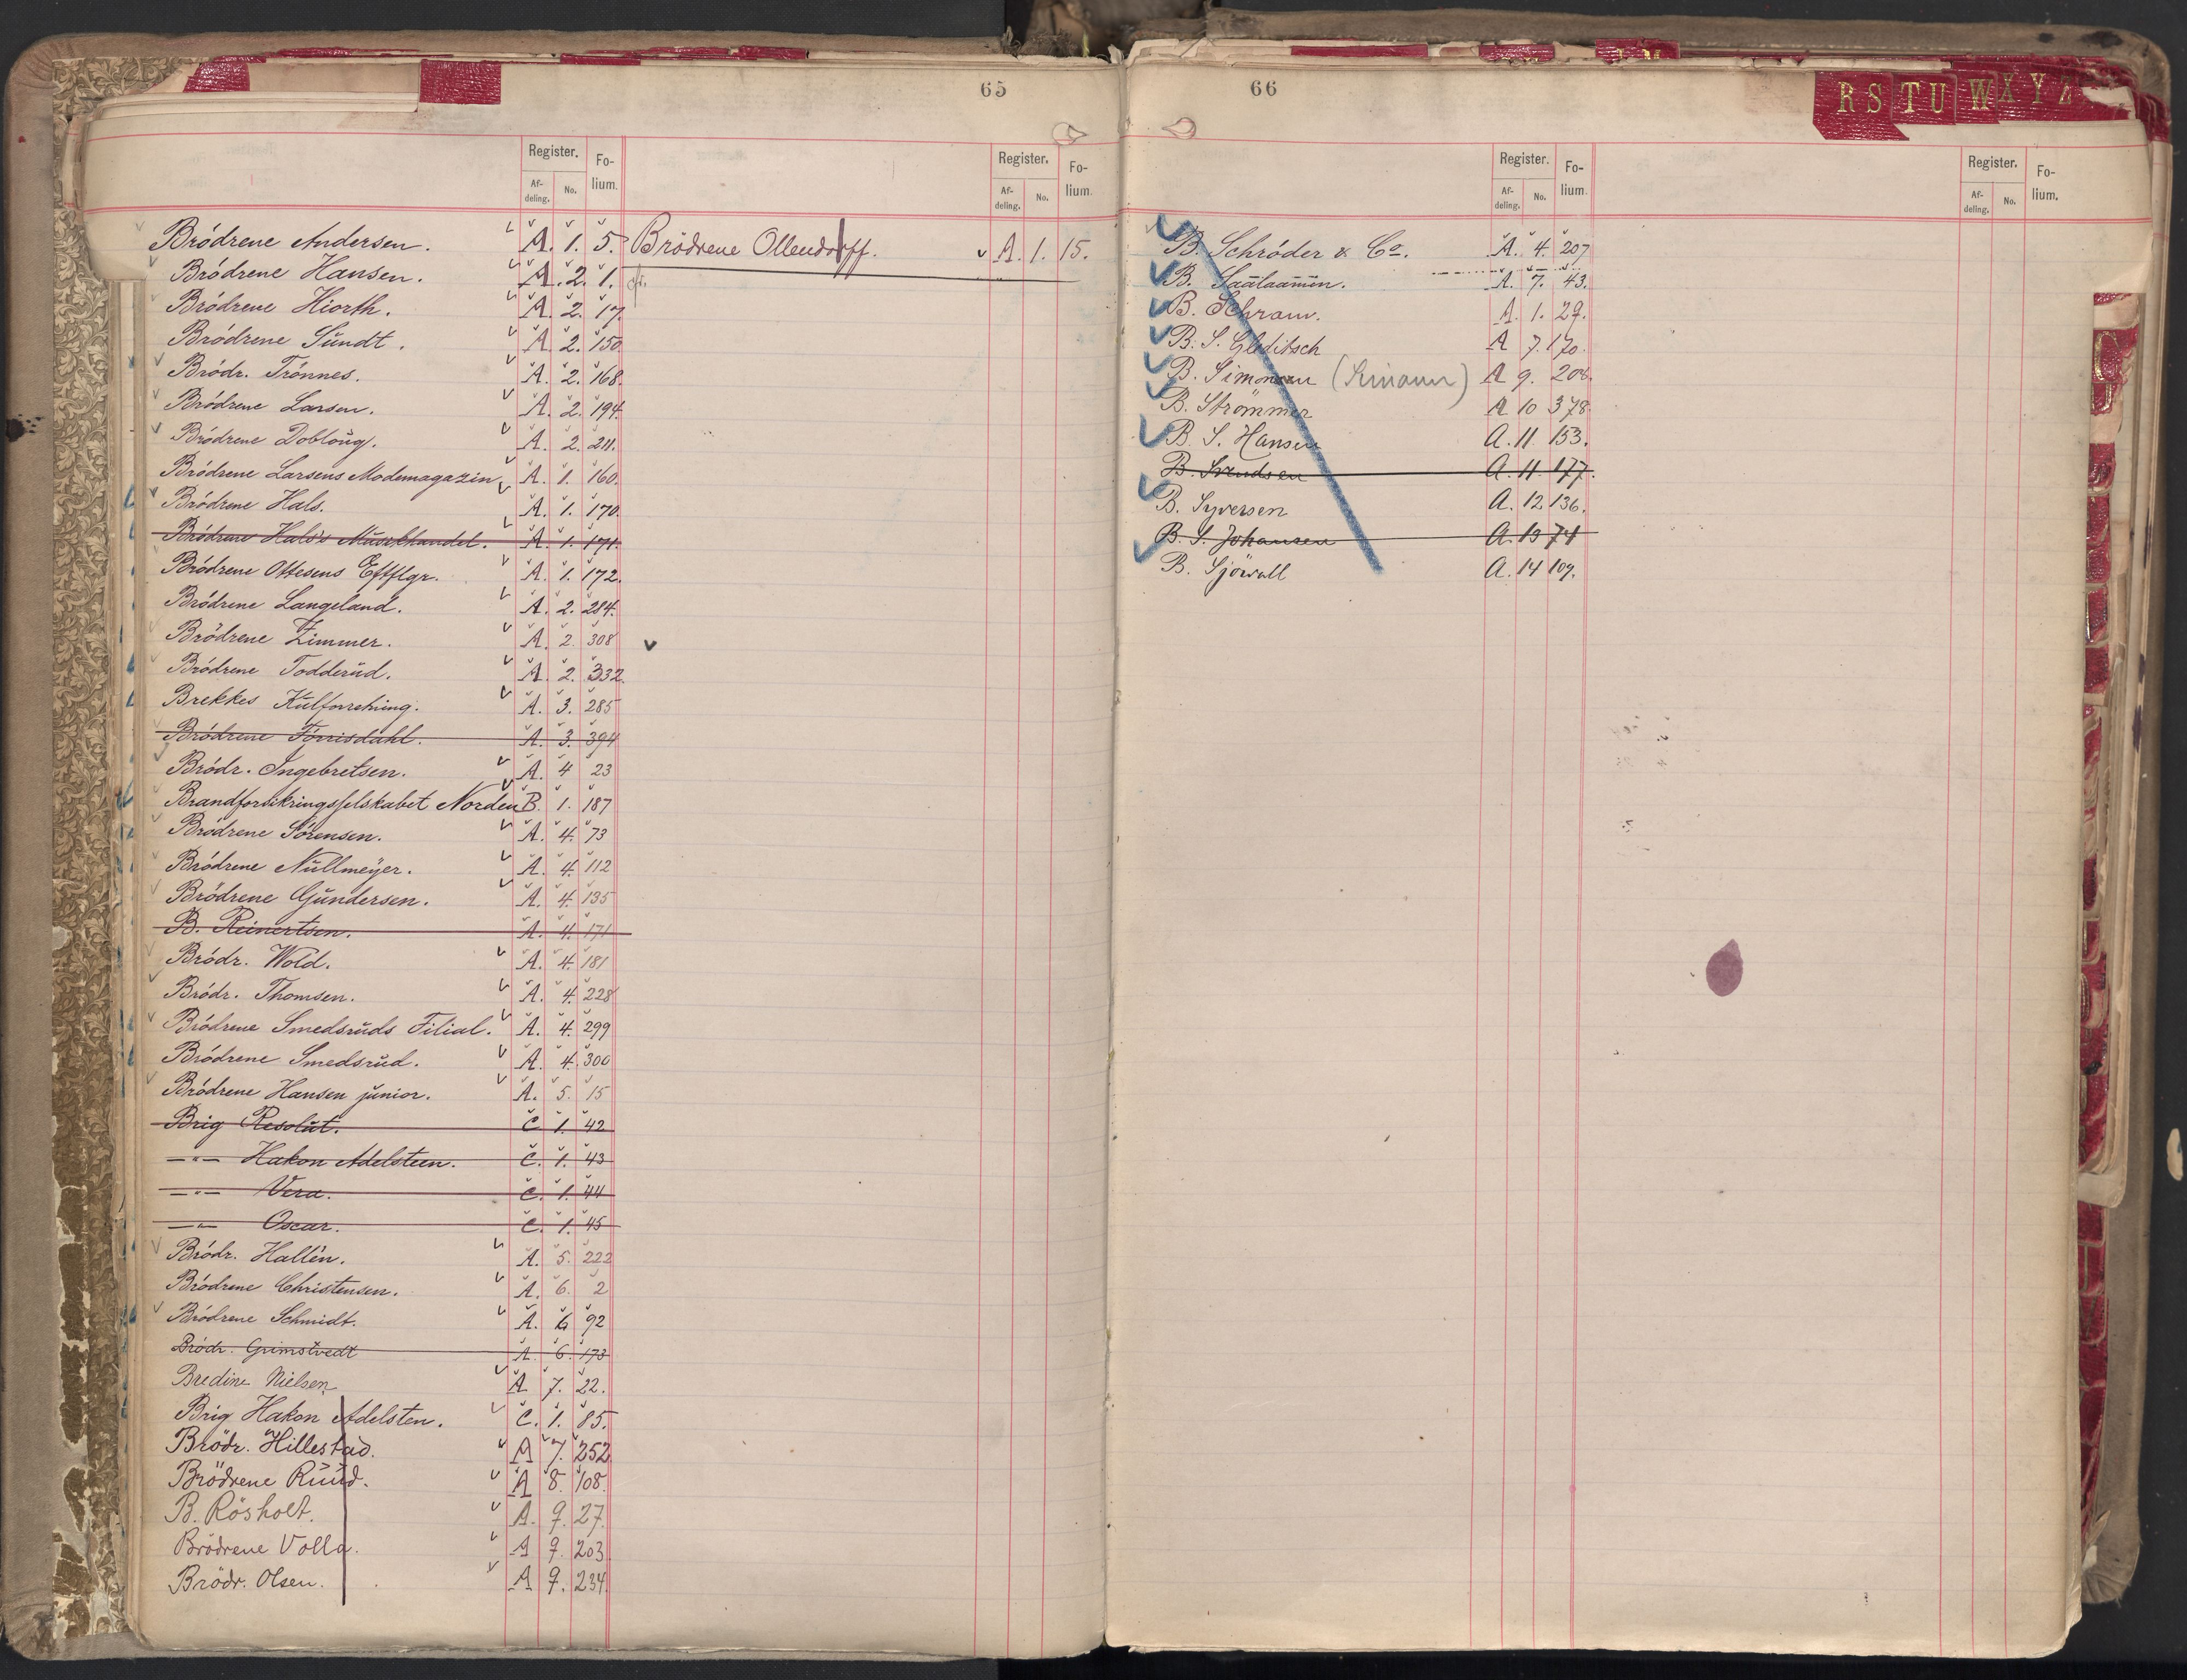 65
Register. Fo-lium.
Af-deling. No.
Register. Fo-lium.
Af-deling. No.
Brödrene Andersen. A. 1. 5.
Brödrene Hansen. A. 2. 1.
Brödrene Hiorth. A. 2. 17.
Brödrene Sundt. A. 2. 150
Brödr. Trönnes. A. 2. 168.
Brödrene Larsen. A. 2. 194.
Brödrene Dobloug. A. 2. 211.
Brödrene Larsens Modemagazin A. 1. 160.
Brödrene Hals. A. 1. 170.
Brödrene Hals's Musikhandel. A. 1. 171.
Brödrene Ottesens Eftflgr. A. 1. 172.
Brödrene Langeland. A. 2. 284.
Brödrene Zimmer. A. 2. 308
Brödrene Todderud. A. 2. 332.
Brekkes Kulforretning. A. 3. 285
Brödrene Förrisdahl. A. 3. 394
Brödr. Ingebretsen. A. 4 23
Brandforsikringsselskabet Norden B. 1. 187
Brödrene Sörensen. A. 4. 73
Brödrene Nüllmeyer. A. 4. 112
Brödrene Gundersen. A. 4. 135
B. Reinertsen. A. 4. 171
Brödr. Wold. A. 4. 181
Brödr. Thomsen. A. 4. 228
Brödrene Smedsruds Filial. A. 4. 299
Brödrene Smedsrud. A. 4. 300
Brödrene Hansen junior. A. 5. 15
Brig Resolut. C 1. 42
—"— Hakon Adelsteen. C. 1. 43
—"— Vera. C. 1. 44
—"— Oscar. C. 1. 45
Brödr. Hallén. A. 5. 222
Brödrene Christensen. A. 6. 2
Brödrene Schmidt. A. 6 92
Brödr. Grimstvedt A. 6. 173
Bredine Nielsen A 7. 22.
Brig Hakon Adelsten. C. 1. 85.
Brödr. Hillestad. A 7. 252
Brödrene Ruud. A 8. 108.
B. Rösholt. A. 9. 27.
Brödrene Volla. A 9. 203.
Brödr. Olsen. A 9. 234.
Brödrene Ollendorff. A. 1. 15.
66
Register. Fo-lium.
Af-deling. No.
Register. Fo-lium.
Af-deling. No.
B. Schröder & Co. A. 4. 207
B. Saalaamen. A. 7. 43.
B. Schram. A. 1. 29.
B. S. Gleditsch A 7. 170.
B. Simonsen (Simann) A 9. 208.
B. Strömmer A 10 378
B. S. Hansen A. 11. 153.
B. Svendsen A. 11. 177.
B. Syversen A. 12 136.
B. S. Johansen A. 13 74
B. Sjöwall A. 14 109.
R S T U W X Y Z